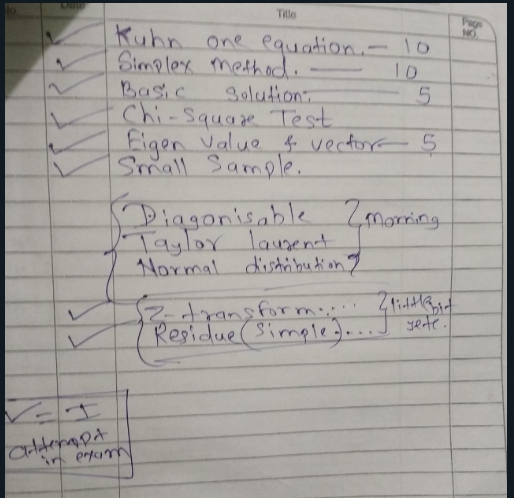 Title
Page
No.
✓ Kuhn one equation. — 10
✓ Simplex method. — 10
✓ Basic Solution. — 5
✓ Chi-Square Test
✓ Eigen Value & vector — 5
✓ Small Sample.
Diagonisable
Taylor laurent } morning
Normal distribution
✓ Z-transform.... } little bit
✓ Residue (Simple)...
✓ = I
attempt
in exam